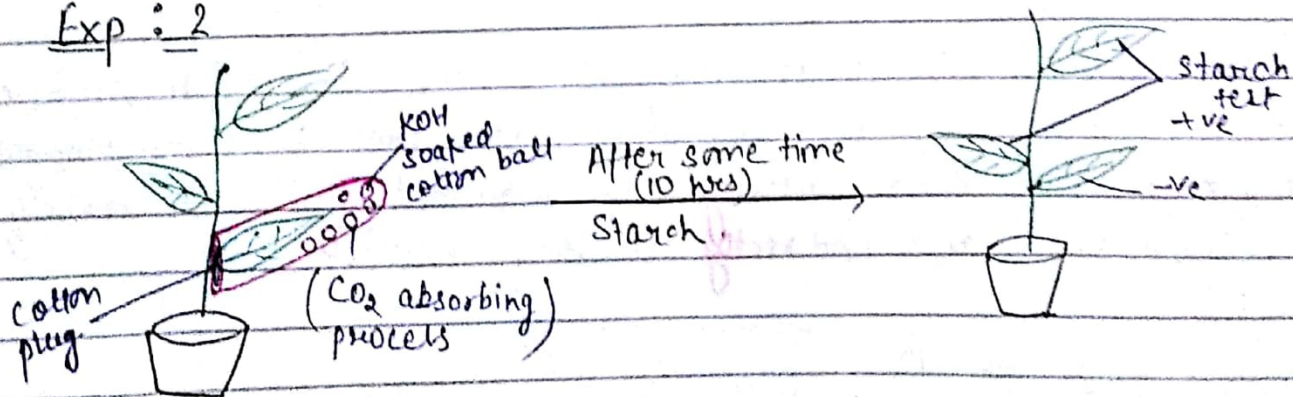 Exp : 2
KOH
soaked
cotton ball
After some time
(10 hrs)
Starch.
cotton
plug
(CO₂ absorbing)
process
starch
test
+ve
-ve